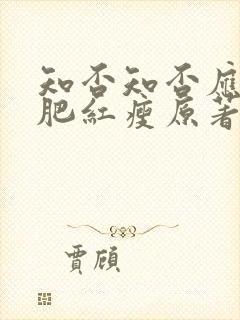 知否知否應
肥紅瘦原著
賈顧